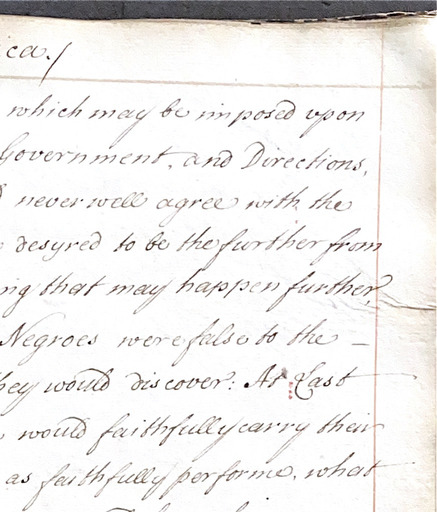 ica./
which may be imposed upon
Government, and Directions,
never well agree with the
desyred to be the further from
ing that may happen further,
Negroes were false to the –
hey would discover: At Last
would faithfully carry their
as faithfully performe, what